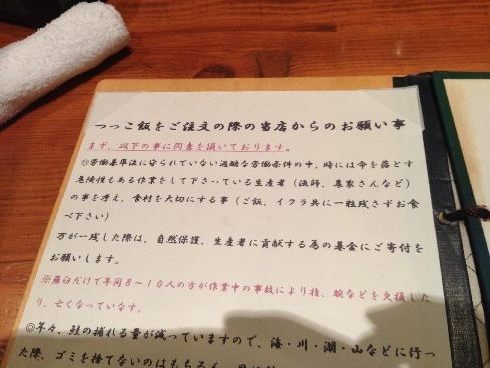 つっこ飯をご注文の際の当店からのお願い事
まず、以下の事に同意を頂いております。
◎労働基準法に守られていない過酷な労働条件の中、時には命を落とす
危険性もある作業をして下さっている生産者（漁師、農家さんなど）
の事を考え、食材を大切にする事（ご飯、イクラ共に一粒残さずお食
べ下さい）
万が一残した際は、自然保護、生産者に貢献する為の募金にご寄付を
お願いします。
※羅臼だけで年間８～１０人の方が作業中の事故により指、腕などを欠損した
り、亡くなっています。
◎年々、鮭の捕れる量が減っていますので、海・川・湖・山などに行っ
た際、ゴミを捨てないのはもちろん、